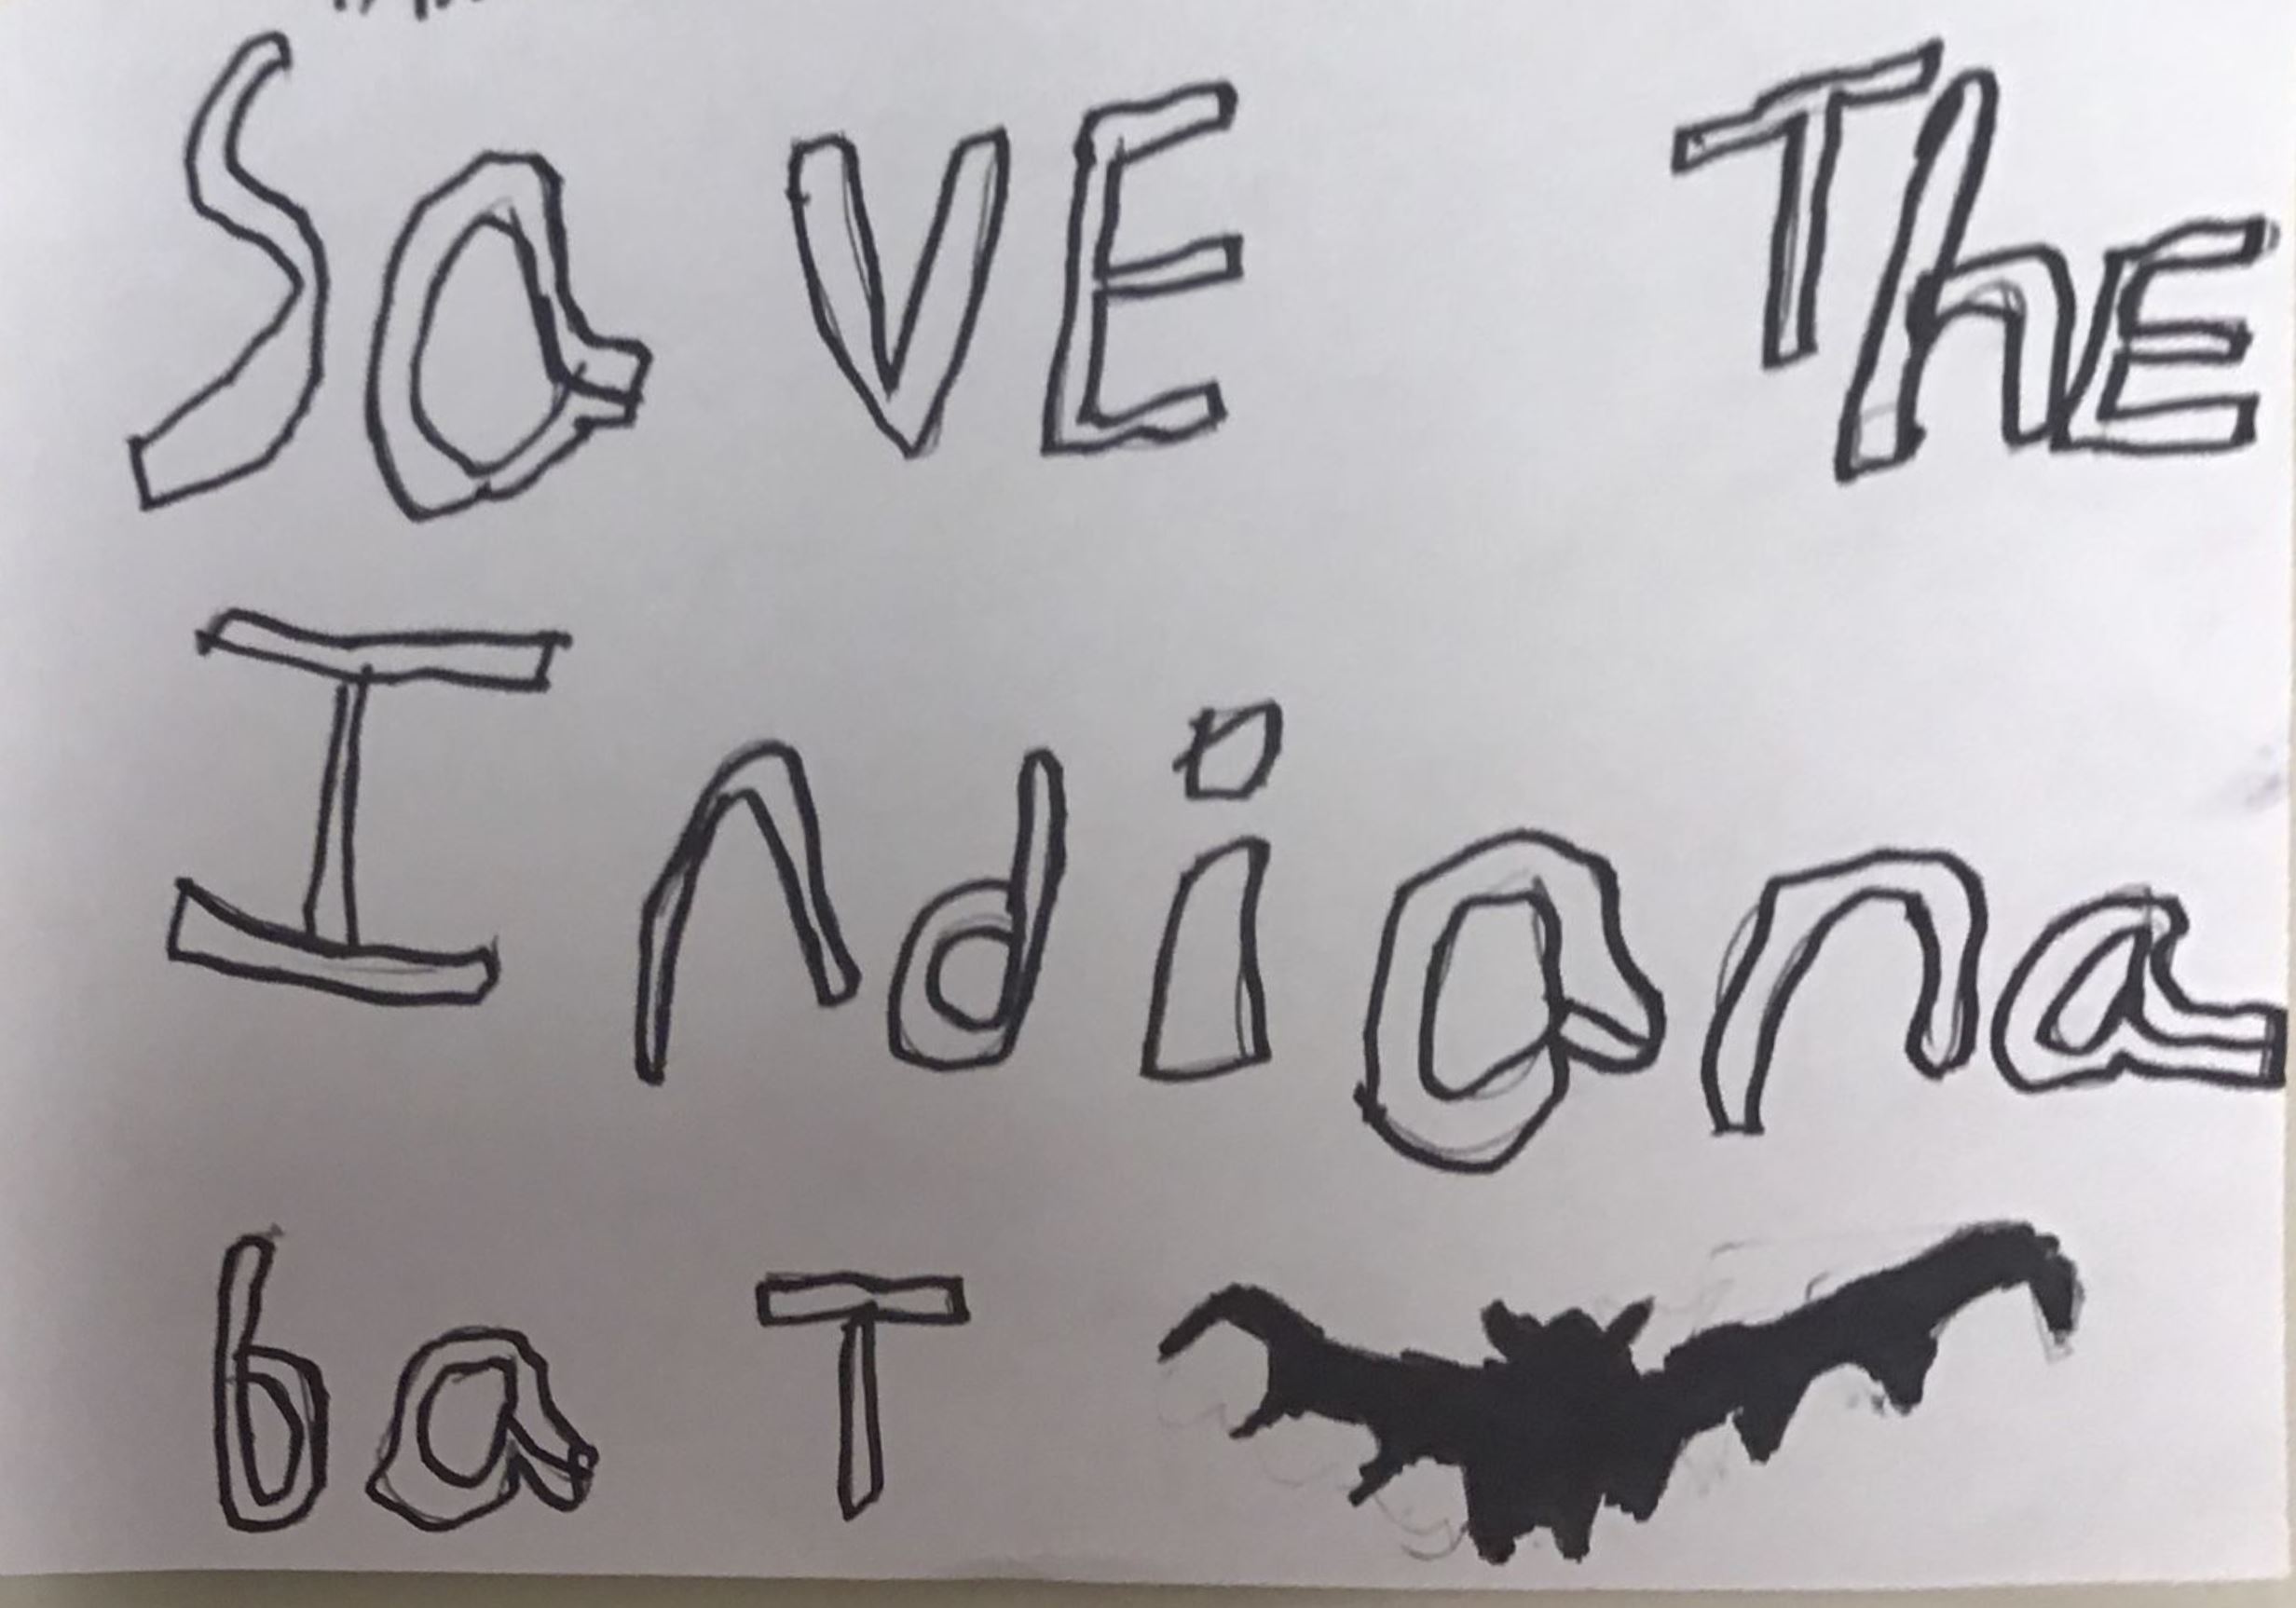 SaVE ThE
Indiana
baT